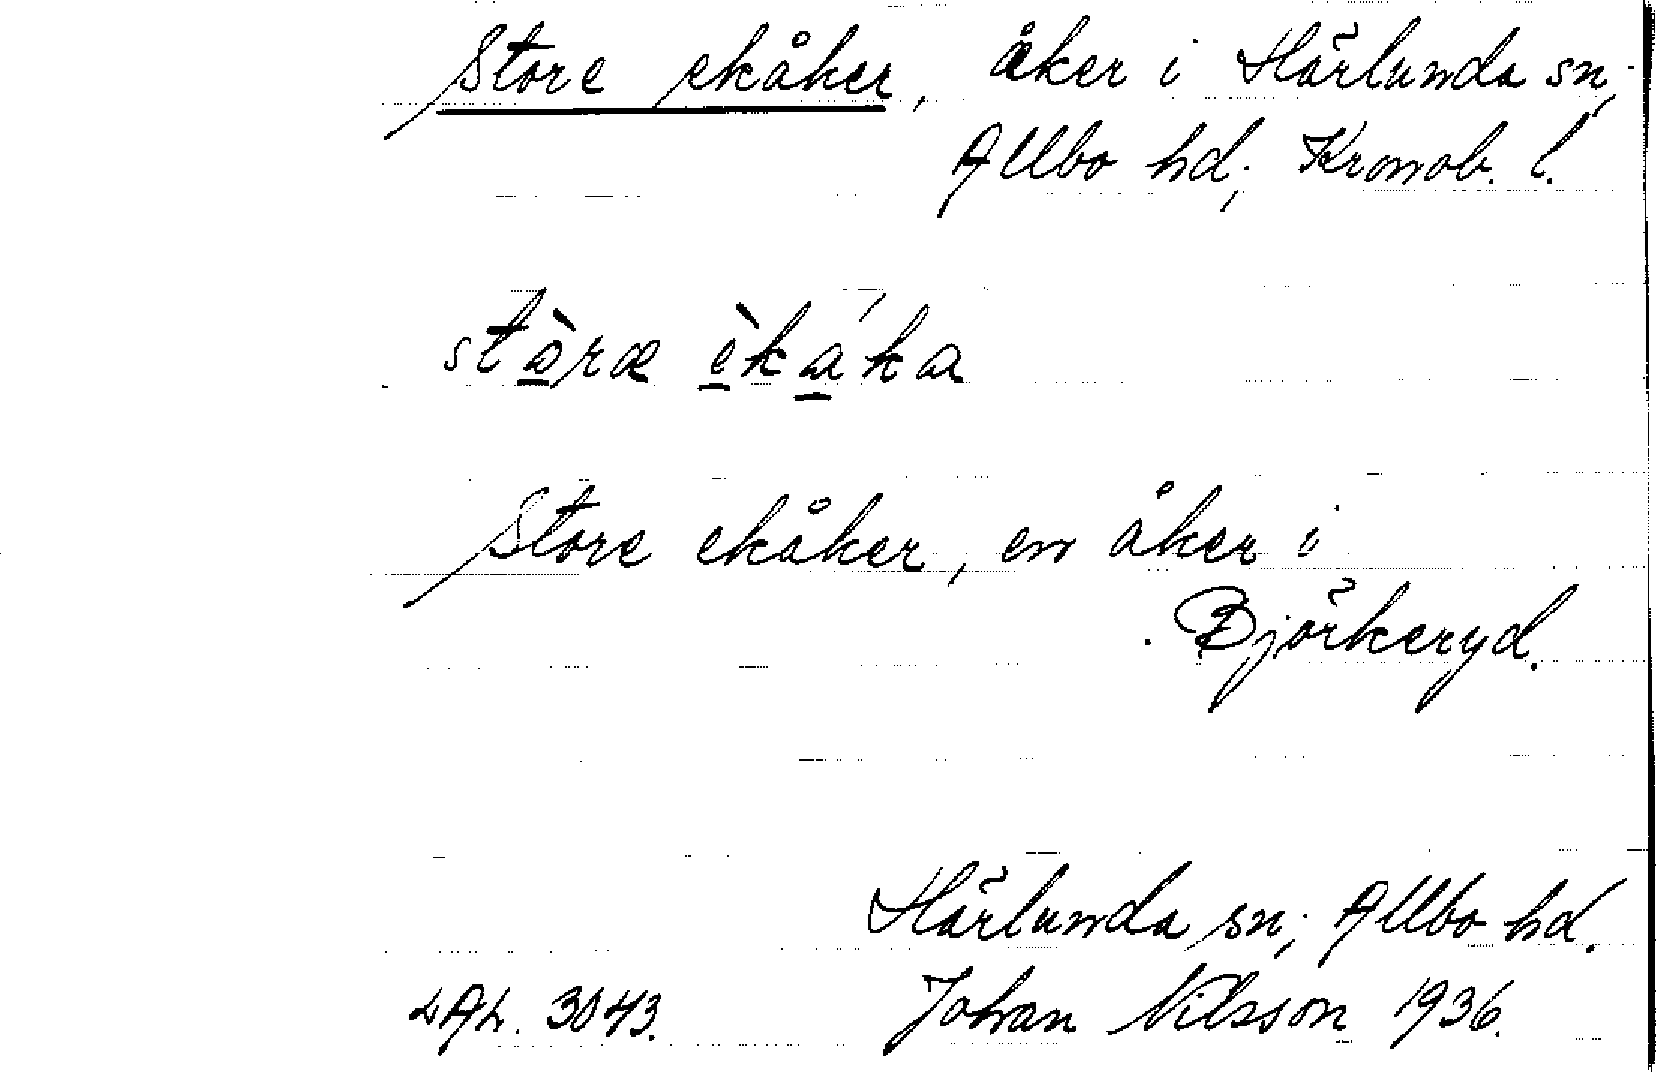 Store ekåker, åker i Härlunda sn,
Allbo hd; Kronob. l.
stòræ èkáka
Store ekåker, en åker i
Björkeryd.
Härlunda sn; Allbo hd.
LAL. 3043. Johan Nilsson 1936.